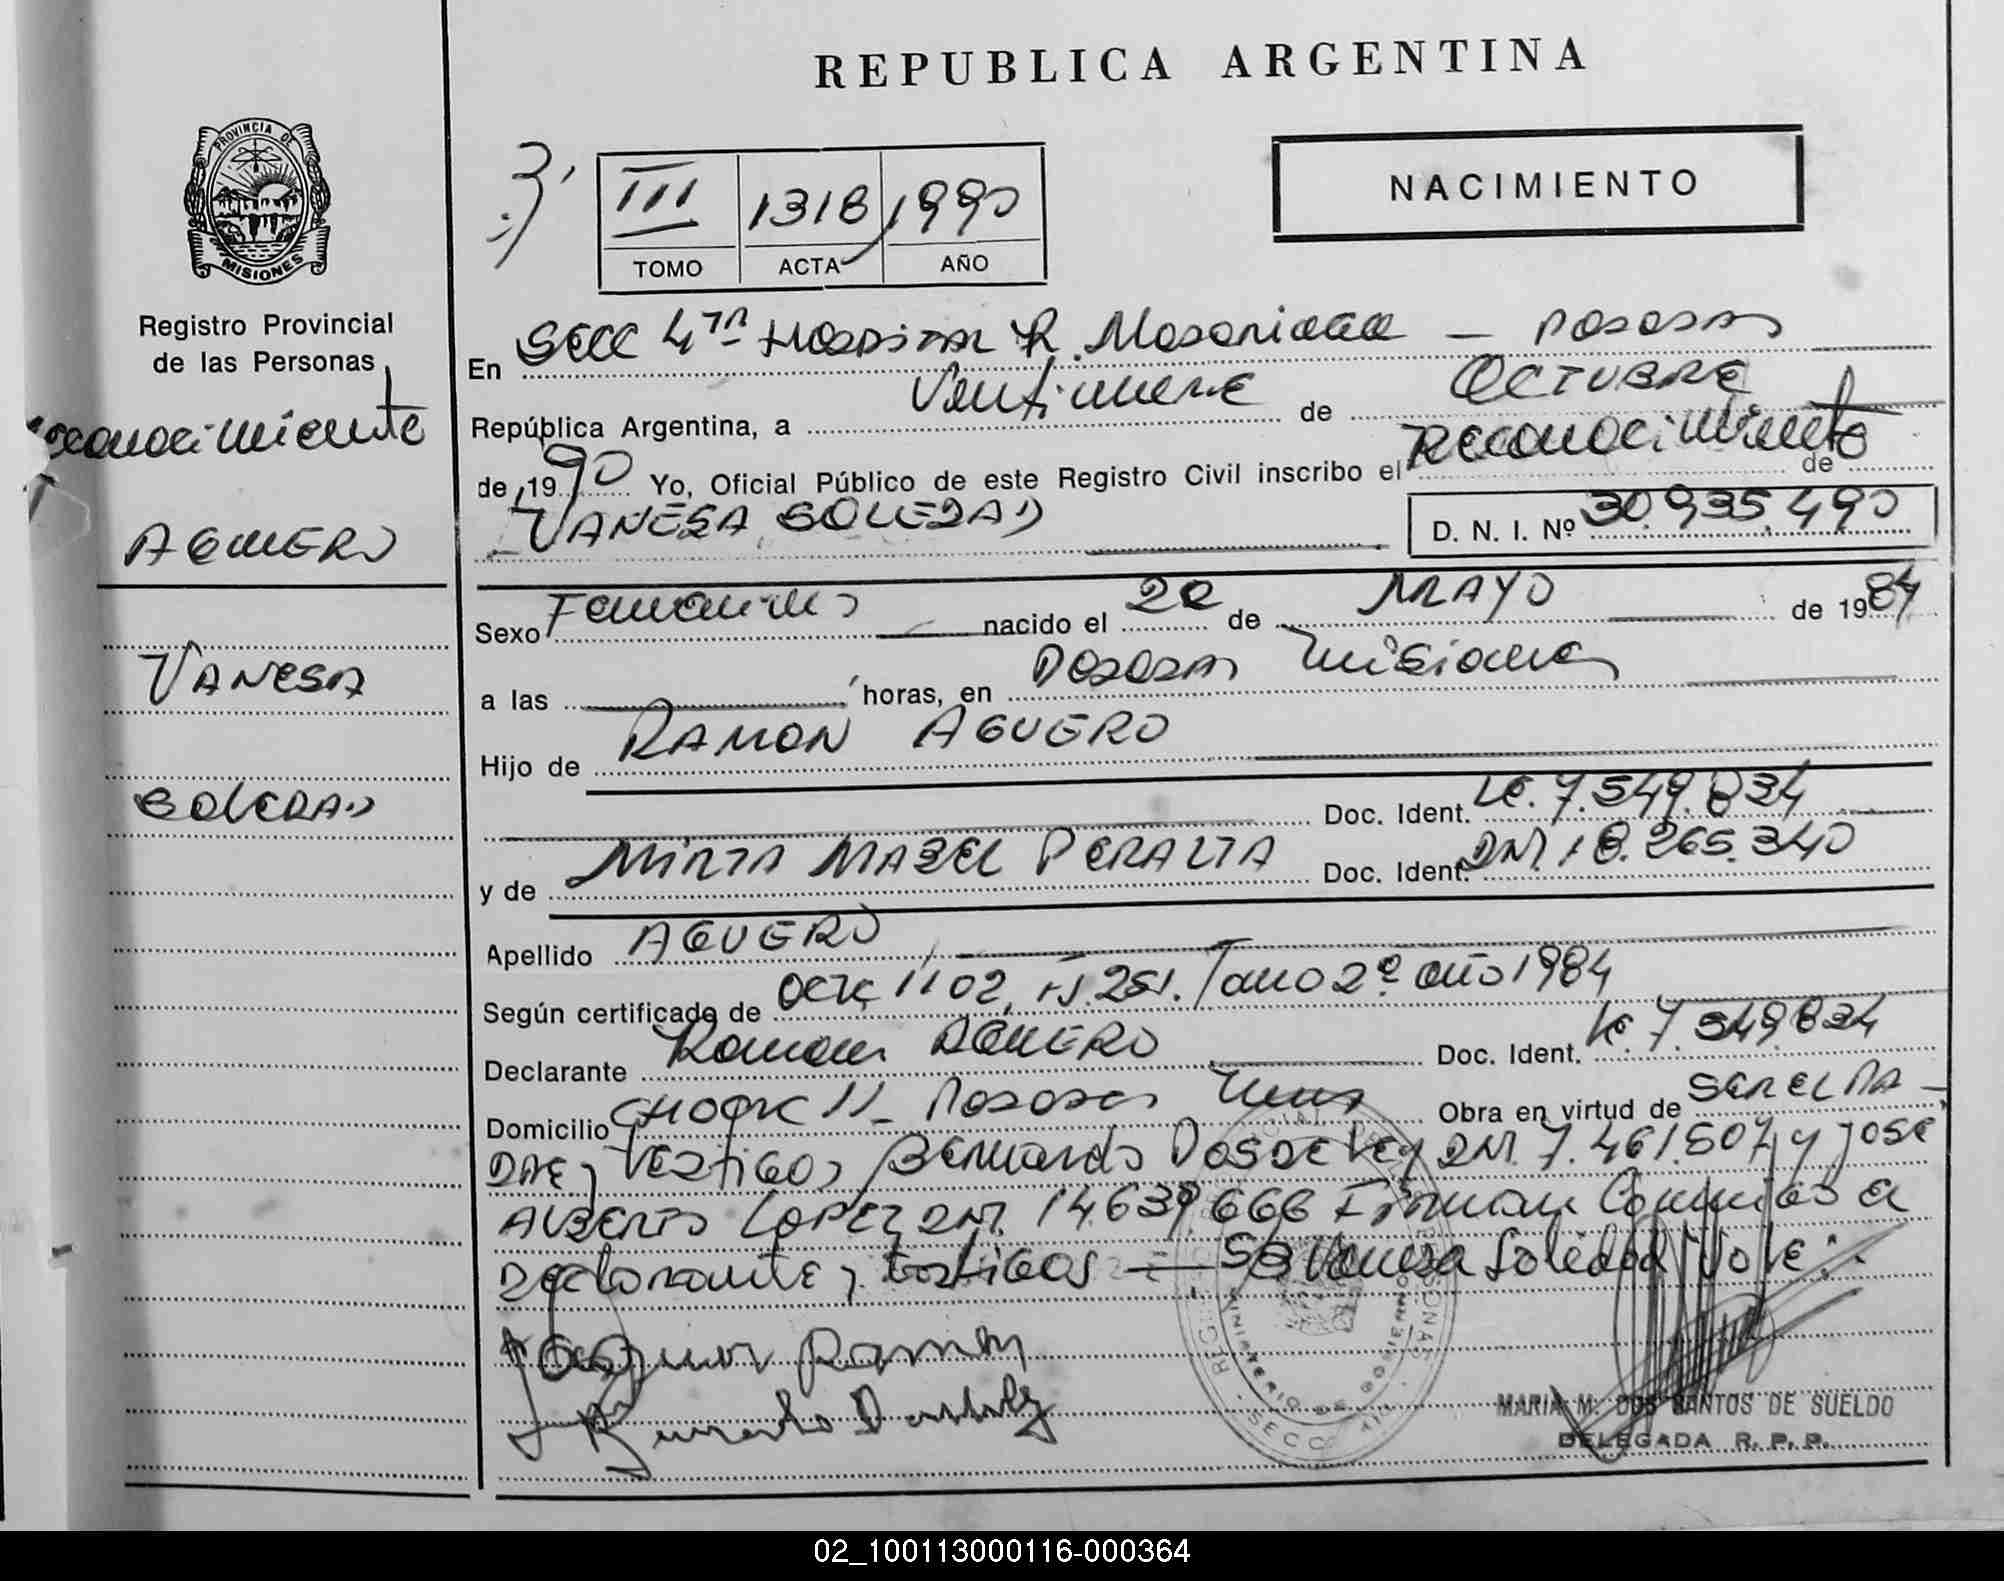 REPUBLICA ARGENTINA
PROVINCIA DE
MISIONES
Registro Provincial
de las Personas
Reconocimiento
AGUERO
VANESA
SOLEDAD
III 1318 1990
TOMO ACTA AÑO
NACIMIENTO
En SECC 4ta HOSPITAL R. Madariaga — POSADAS
República Argentina, a Veintinueve de OCTUBRE
de 1990 Yo, Oficial Público de este Registro Civil inscribo el Reconocimiento de
VANESA SOLEDAD D. N. I. Nº 30.935.490
Sexo Femenino nacido el 22 de MAYO de 1984
a las horas, en POSADAS Misiones
Hijo de RAMON AGUERO
Doc. Ident. LE. 7.549.834
y de MIRTA MABEL PERALTA Doc. Ident. DNI 18.265.340
Apellido AGUERO
Según certificado de Acta 1102, FJ. 251. Tomo 2º año 1984
Declarante Ramon AGUERO Doc. Ident. LE. 7.549.834
Domicilio CHACRA 11 - POSADAS Mnes Obra en virtud de SER EL PA-
DRE, TESTIGOS Bernardo DNI. 7.461.507 y JOSE
ALBERTO LOPEZ DNI. 14.639.666 Firman Conmigo a
Declarante y testigos — SB Vanesa Soledad Vale:.
Ramon
Bernardo
MARIA M. DOS SANTOS DE SUELDO
DELEGADA R. P. P.
02_100113000116-000364